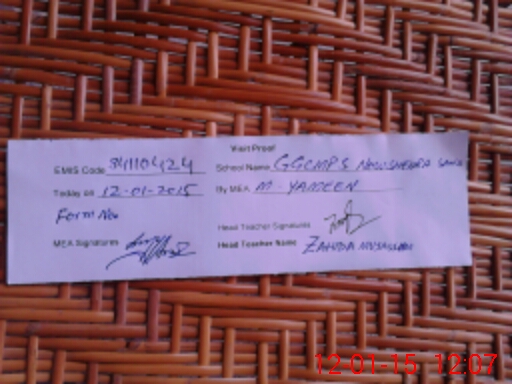 Visit Proof
EMIS Code 34110424 School Name GGCMPS NOWSHEHRA
Today on 12-01-2015 By MEA M-YAMEEN
Form No
Head Teacher Signatures
MEA Signatures Head Teacher Name ZAHIDA
12-01-15 12:07